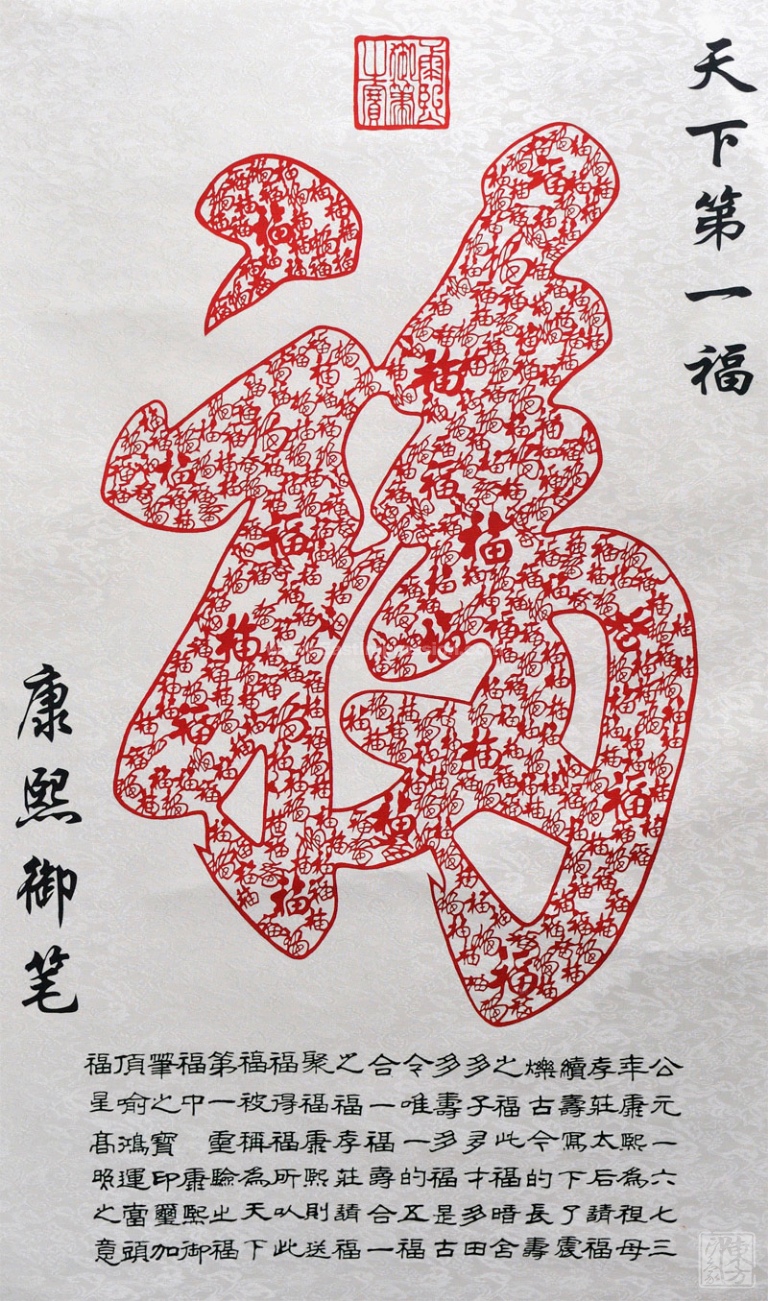 康熙御筆之寶
天下第一福
康熙御笔
公元一六七三
年康熙為祖母
孝莊太后請福
續壽寫下了震
爍古今的長壽
之福此福暗含
多子多才多田
多壽多福是古
令唯一的五福
合一福壽合一
之福孝莊請福
聚福康熙則送
福得福所以此
福被稱為天下
第一重之福
福中康熙御
筆之寶印璽加
頂喻鴻運當頭
福呈高照之意